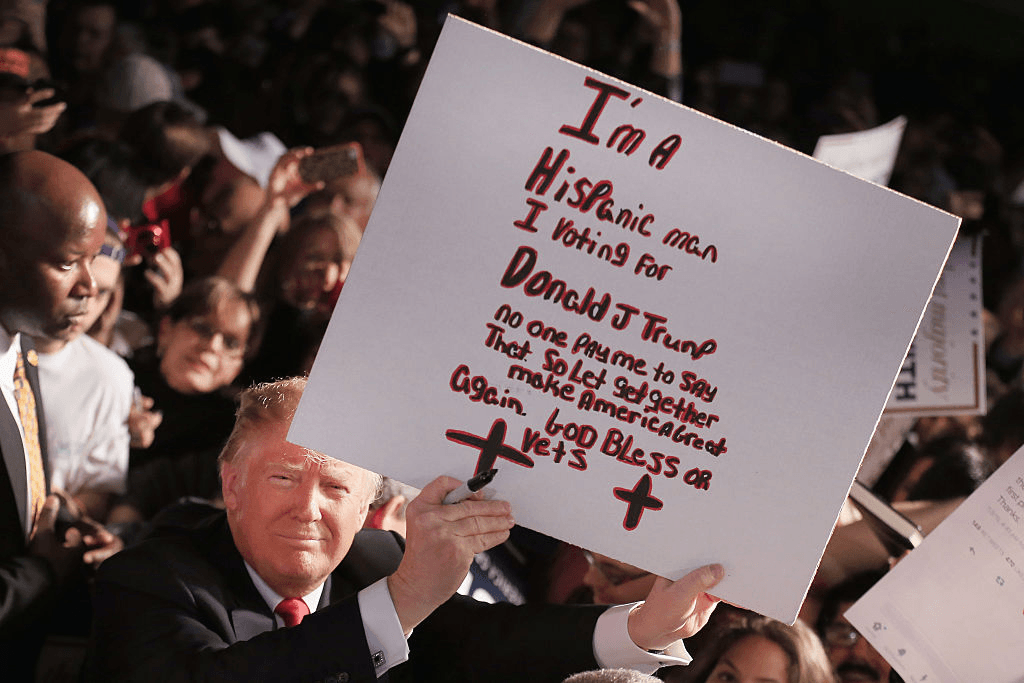 I'm A
Hispanic man
I voting for
Donald J Trump
no one pay me to say
That. So Let getgether
make America Great
Again. GOD BLess or
vets